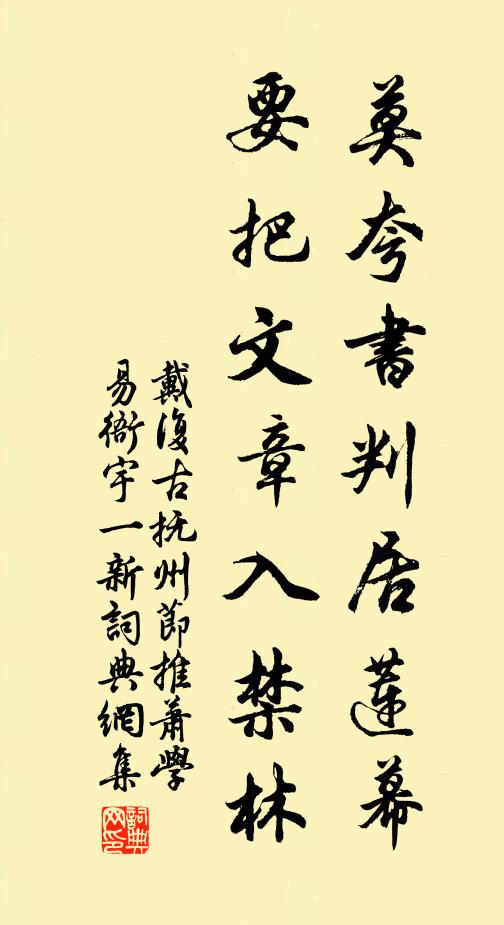 莫夸書判居蓮幕
要把文章入禁林
戴復古抚州節推蕭學
易衙宇一新詞典網集
詞典
网印